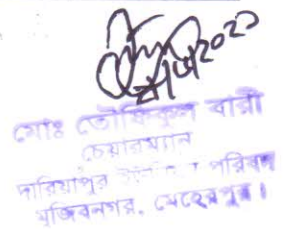 মোঃ তৌফিকুল বারী
চেয়ারম্যান
দারিয়াপুর ইউনিয়ন পরিষদ
মুজিবনগর, মেহেরপুর।